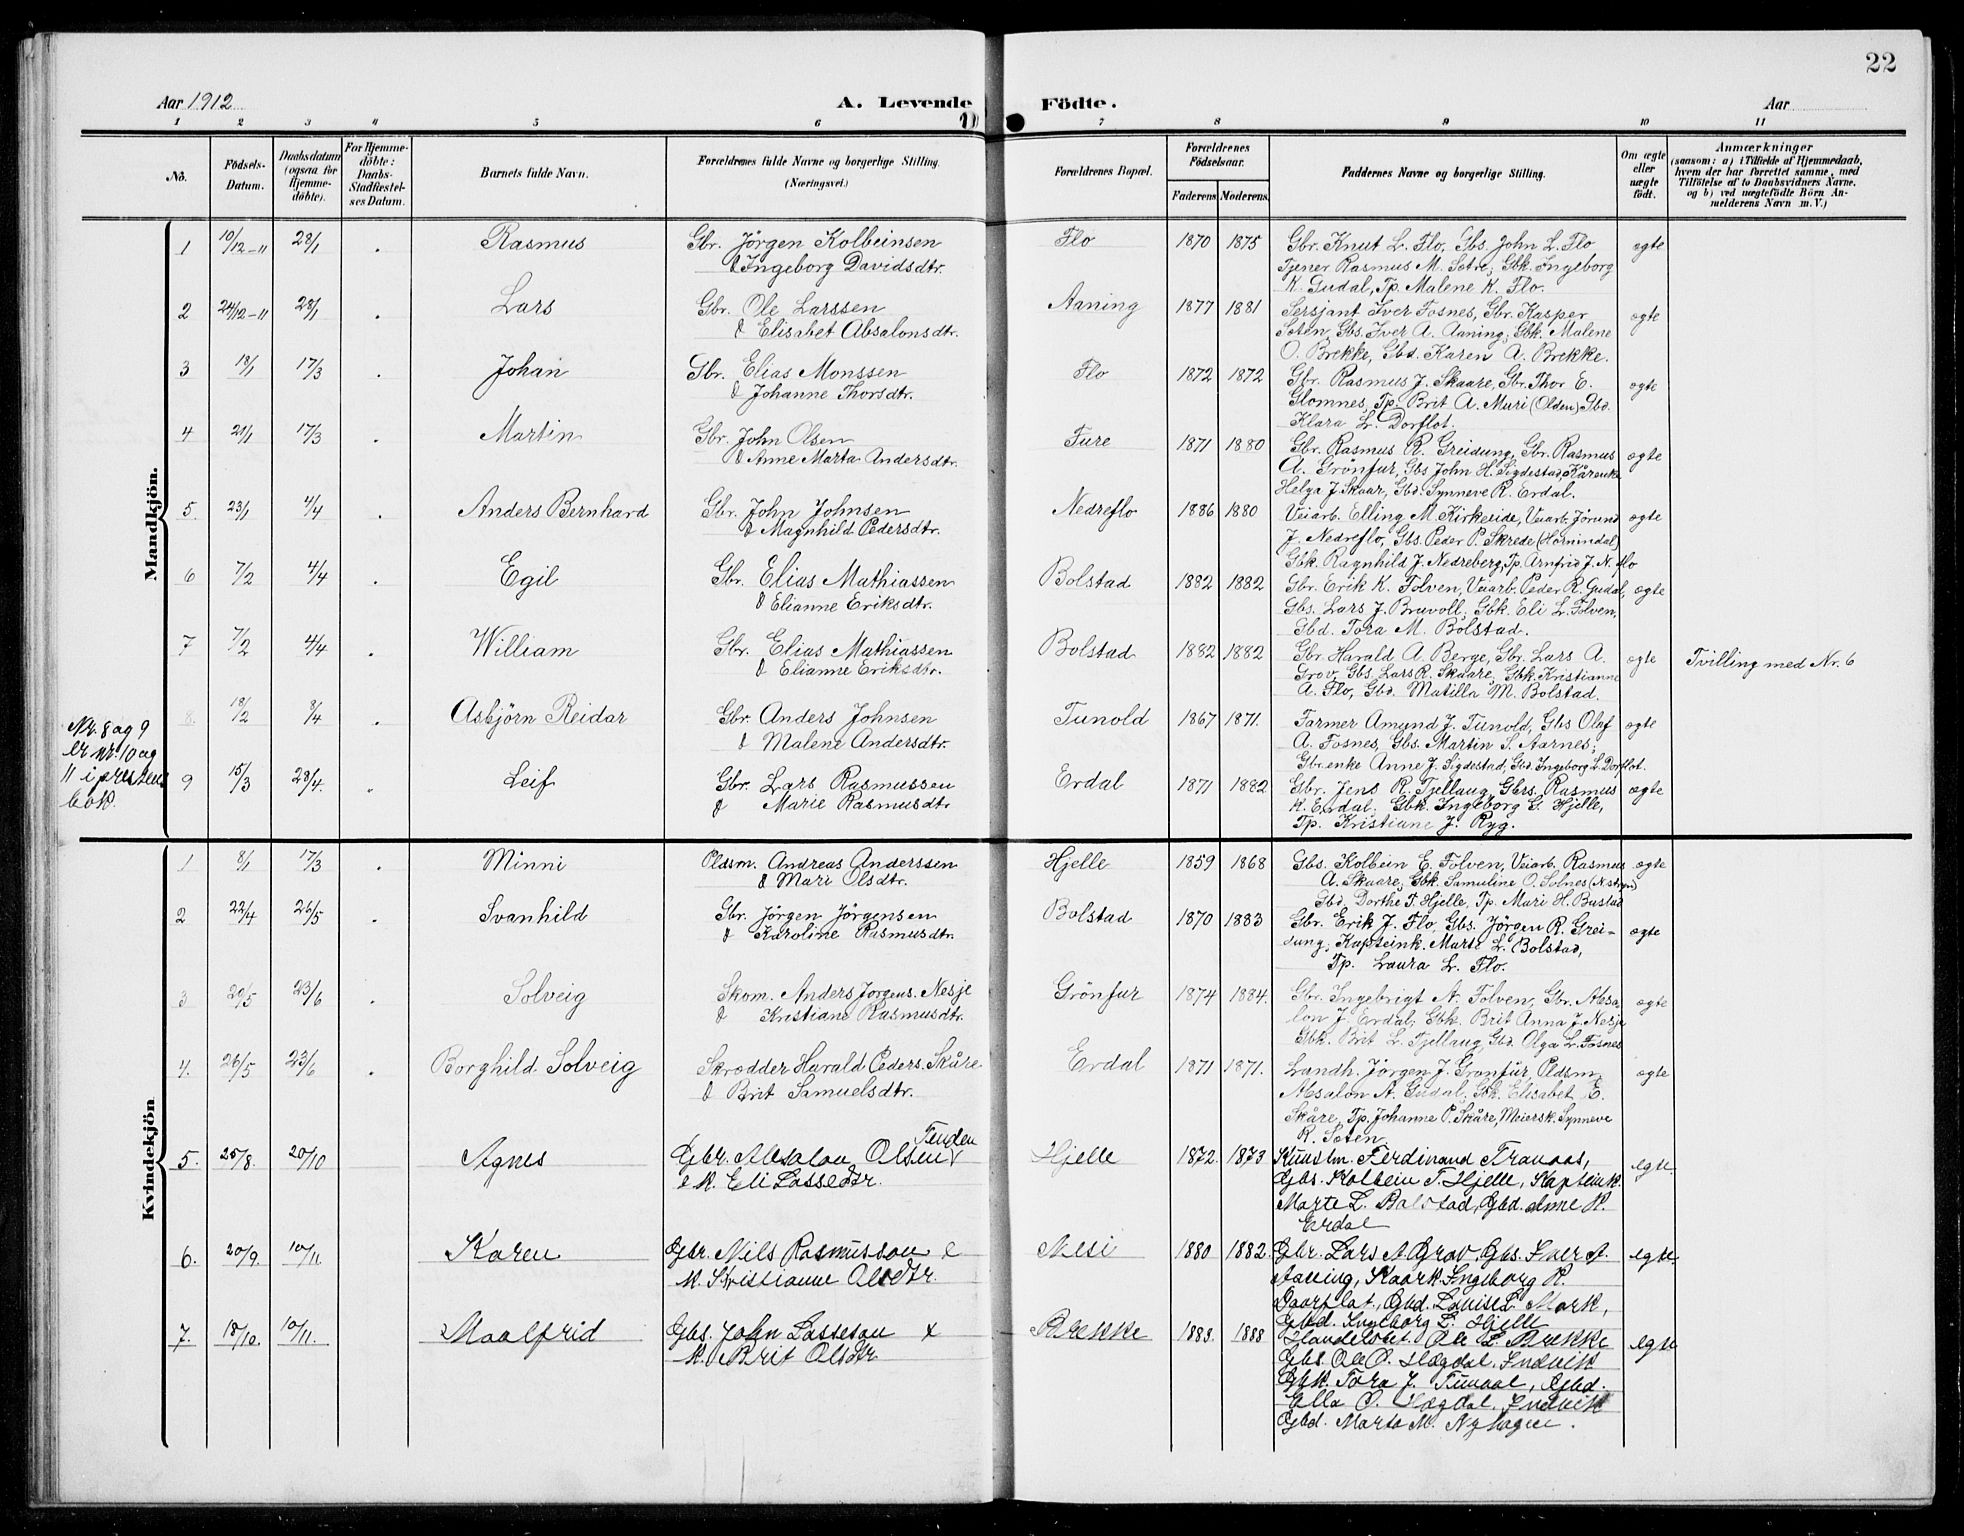 22
Aar 1912 A. Levende Födte. Aar
1 2 3 4 5 6 7 8 9 10 11
No. Födsels-Datum. Daabsdatum (ogsaa for Hjemme-döbte). For Hjemme-döbte: Daabs-Stadfæstel-ses Datum. Barnets fulde Navn. Forældrenes fulde Navne og borgerlige Stilling. (Næringsvei.) Forældrenes Bopæl. Forældrenes Födselsaar. Faderens. Moderens. Faddernes Navne og borgerlige Stilling. Om ægte eller uægte födt. Anmærkninger (saasom: a) i Tilfælde af Hjemmedaab, hvem der har forrettet samme, med Tilföielse af to Daabsvidners Navne, og b) ved uægtefödte Börn An-melderens Navn m. V.)
Mandkjön.
1 10/12-11 28/1 Rasmus Gbr. Jörgen Kolbeinsen Flo 1870 1875 Gbr. Knut L. Flo, Gbs. John L. Flo ægte
& Ingeborg Davidsdtr. Tjener Rasmus M. Sætre, Gbk. Ingeborg
K. Gudal, Tp. Malene K. Flo.
2 24/12-11 28/1 Lars Gbr. Ole Larssen Aaning 1877 1881 Sersjant Iver Fosnes, Gbr. Kasper ægte
& Elisabet Absalonsdtr. Soten, Gbs. Iver A. Aaning, Gbk. Malene
O. Brekke, Gbd. Karen A. Brekke.
3 18/1 17/3 Johan Gbr. Elias Monssen Flo 1872 1872 Gbr. Rasmus J. Skaare, Gbr. Thor E. ægte
& Johanne Thorsdtr. Glomnes, Tp. Brit A. Muri (Olden) Gbd.
Klara L. Dorflot.
4 21/1 17/3 Martin Gbr. John Olsen Ture 1871 1880 Gbr. Rasmus R. Greidung, Gbr. Rasmus ægte
& Anne Marta Andersdtr. A. Grönfur, Gbs John H. Sigdestad,
Helga J. Skaar, Gbd. Synneve R. Erdal.
5. 23/1 4/4 Anders Bernhard Gbr. John Johnsen Nedreflo 1886 1880 Veiarb. Elling M. Kirkeide, Veiarb. Jörund ægte
& Magnhild Pedersdtr. J. Nedreflo, Gbs. Peder P. Skrede (Hornindal)
Gbk. Ragnhild J. Nedreberg, Tp. Arnfrid J. N. flo
6 7/2 4/4 Egil Gbr. Elias Mathiassen Bolstad 1882 1882 Gbr. Erik K. Folven, Veiarb. Peder R. Gudal, ægte
& Elianne Eriksdtr. Gbs. Lars J. Bruvoll, Gbk. Eli L. Folven,
Gbd. Tora M. Bolstad.
7 7/2 4/4 William Gbr. Elias Mathiassen Bolstad 1882 1882 Gbr. Harald A. Berge, Gbr. Lars A. ægte Tvilling med Nr. 6
& Elianne Eriksdtr. Grov, Gbs. Lars R. Skaare, Gbk. Kristianne
A. Flo, Gbd. Matilla M. Bolstad.
8. 18/2 8/4 Asbjörn Reidar Gbr. Anders Johnsen Tunold 1867 1871. Farmer Amund J. Tunold, Gbs Olaf ægte
& Malene Andersdtr. A. Fosnes, Gbs. Martin S. Aarnes,
Gbr.enke Anne J. Sigdestad, Gbd. Ingeborg L. Dorflot.
Nr. 8 og 9
er nr. 10 og
11 i prestens
bok.
9 15/3 28/4. Leif Gbr. Lars Rasmussen Erdal 1871 1882 Gbr. Jens R. Tjellaug, Gbrs. Rasmus ægte
& Marie Rasmusdtr K. Erdal, Gbk. Ingeborg G. Hjelle,
Tp. Kristiane J. Ryg.
Kvindekjön
1 8/1 17/3 Minni Pldsm. Andreas Anderssen Hjelle 1859 1868 Gbs. Kolbein E. Folven, Veiarb. Rasmus ægte
& Mari Olsdtr. A. Skaare, Gbk. Samuline O. Solnes (N.stryn)
Gbd. Dorthe T. Hjelle, Tp. Mari H. Bustad
2 22/4 26/5 Svanhild Gbr. Jörgen Jörgensen Bolstad 1870 1883 Gbr. Erik J. Flo, Gbs. Jörgen R. Grei- ægte
& Karoline Rasmusdtr. dung, Kapteink. Marte L. Bolstad,
Tp. Laura L. Flo.
3 20/5 23/6 Solveig Skom. Anders Jørgens. Nesje Grönfur 1874 1884. Gbr. Ingebrigt A. Folven, Gbr. Absa- ægte
& Kristiane Rasmusdtr. lon J. Erdal, Gbk. Brit Anna J. Nesje
Gbk. Brit L. Tjellaug, Gbd. Olga L. Fosnes
4. 26/5 23/6 Borghild Solveig Skrædder Harald Peders. Skåre Erdal 1871 1871. Landh. Jörgen J. Grønfur, Pldsm. ægte
& Brit Samuelsdtr. Absalon A. Gudal, Gbk. Elisabet E.
Skåre, Tp. Johanne P. Skåre, Meiersk. Synneve
R. Soten
5. 25/8. 20/10 Agnes Gbr. Absalon Olsen Tenden Hjelle 1872. 1873 Kunstm. Ferdinand Tranaas, egte
e k. Eli Lassedtr. Gbs. Kolbein T. Hjelle, Kapteink.
Marte L. Bolstad, Gbd. Anne R.
Erdal
6. 20/9. 10/11. Karen Gbr. Nils Rasmusson e Mesi 1880 1882. Gbr. Lars A. Grov, Gbs. Iver A. egte.
k. Kristianne Olsdtr. Aaning, Ingeborg R.
Gbd. Lovise L. Mork,
Gbd. Ingeborg L. Hjelle
7. 18/10. 10/11. Maalfrid Gbs. John Lasseson & Brekke 1883. 1888 Handelsbet. Ole L. Brekke egte
k. Brit Olsdtr Gbs. Ole O. Hægdal, Indvik
Gbk. Tora J. Tunold, Gbd.
Ella O. Hægdal, Indvik
Gbd. Marta M. Nyhagen.